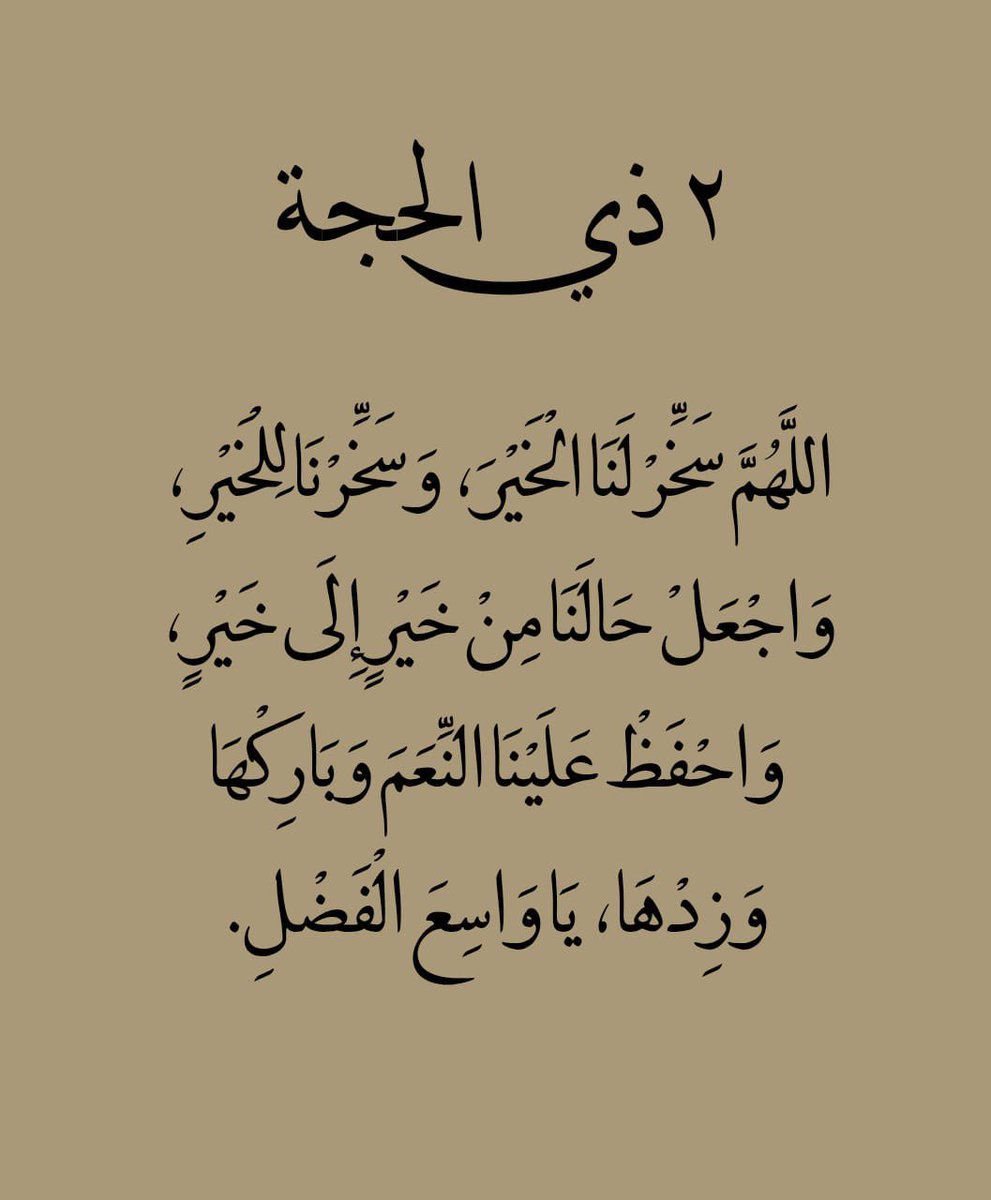 ٢ ذي الحجة
اللَّهُمَّ سَخِّرْ لَنَا الْخَيْرَ، وَسَخِّرْنَا لِلْخَيْرِ،
وَاجْعَلْ حَالَنَا مِنْ خَيْرٍ إِلَى خَيْرٍ،
وَاحْفَظْ عَلَيْنَا النِّعَمَ وَبَارِكْهَا
وَزِدْهَا، يَا وَاسِعَ الْفَضْلِ.